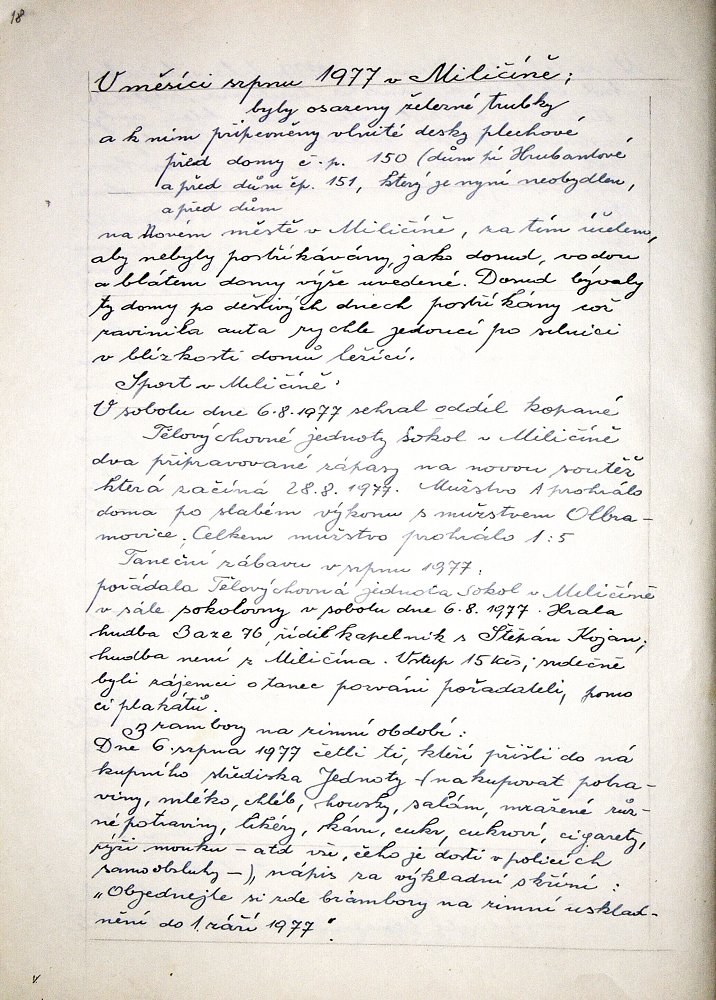 18
V měsíci srpnu 1977 v Miličíně;
byly osazeny železné trubky
a k nim připevněny vlnité desky plechové
před domy č. p. 150 (dům pí Hrubantové
a před dům čp. 151, který je nyní neobydlen,
a před dům
na Novém městě v Miličíně, za tím účelem,
aby nebyly postřikávány, jako dosud, vodou
a blátem domy výše uvedené. Dosud bývaly
ty domy po deštivých dnech postříkány což
zavinila auta rychle jedoucí po silnici
v blízkosti domů ležící.
Sport v Miličíně:
V sobotu dne 6.8.1977 sehrál oddíl kopané
Tělovýchovné jednoty Sokol v Miličíně
dva připravované zápasy na novou soutěž
která začíná 28.8.1977. Mužstvo A prohrálo
doma po slabém výkonu s mužstvem Olbra-
movice. Celkem mužstvo prohrálo 1:5
Taneční zábavu v srpnu 1977:
pořádala Tělovýchovná jednota Sokol v Miličíně
v sále sokolovny v sobotu dne 6.8.1977. Hrála
hudba Baze 76, řídil kapelník s Štěpán Kojan;
hudba není z Miličína. Vstup 15 kčs; srdečně
byli zájemci o tanec pozváni pořadateli, pomo
cí plakátů.
Brambory na zimní období:
Dne 6. srpna 1977 četli ti, kteří přišli do ná
kupního střediska Jednoty - (nakupovat potra-
viny, mléko, chléb, housky, salám, mražené růz-
né potraviny, likéry, kávu, cukr, cukroví, cigarety,
rýži mouku - atd vše, čeho je dosti v policích
samoobsluhy -), nápis za výkladní skříní:
"Objednejte si zde brambory na zimní usklad-
nění do 1. září 1977".
v